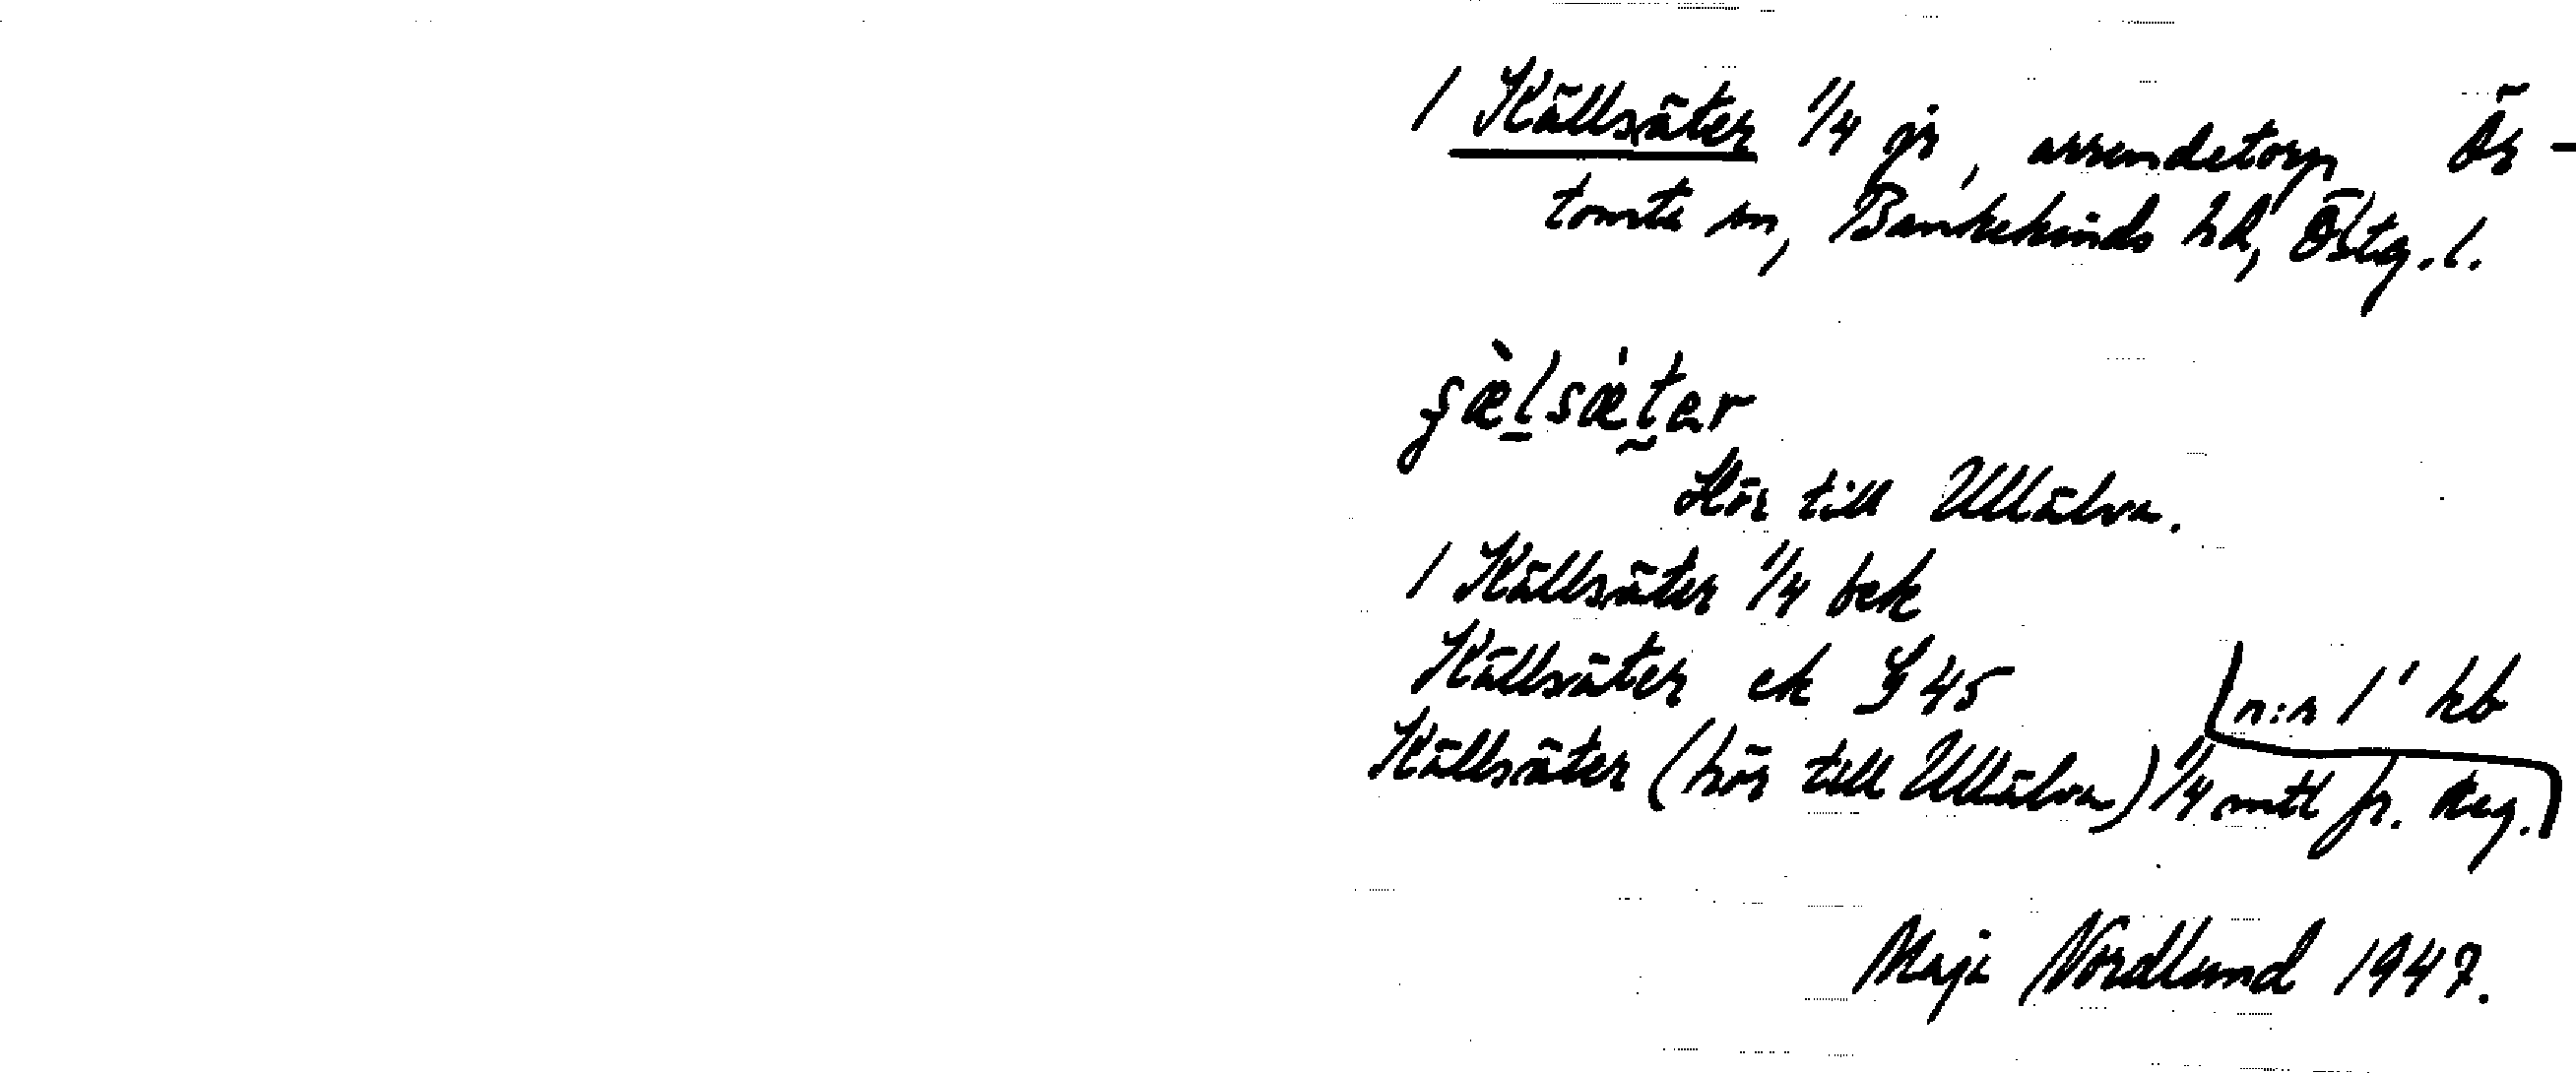 1 Källsäter 1/4 jr, arrendetorp Ör-
tomta sn, Bankekinds hd, Östg.l.
Hör till Ullälva.
1 Källsäter 1/4 bek
Källsäter ek J 45
n:r 1' kb
Källsäter (hör till Ullälva) 1/4 mtl fr.
Maja Nordlund 1947.